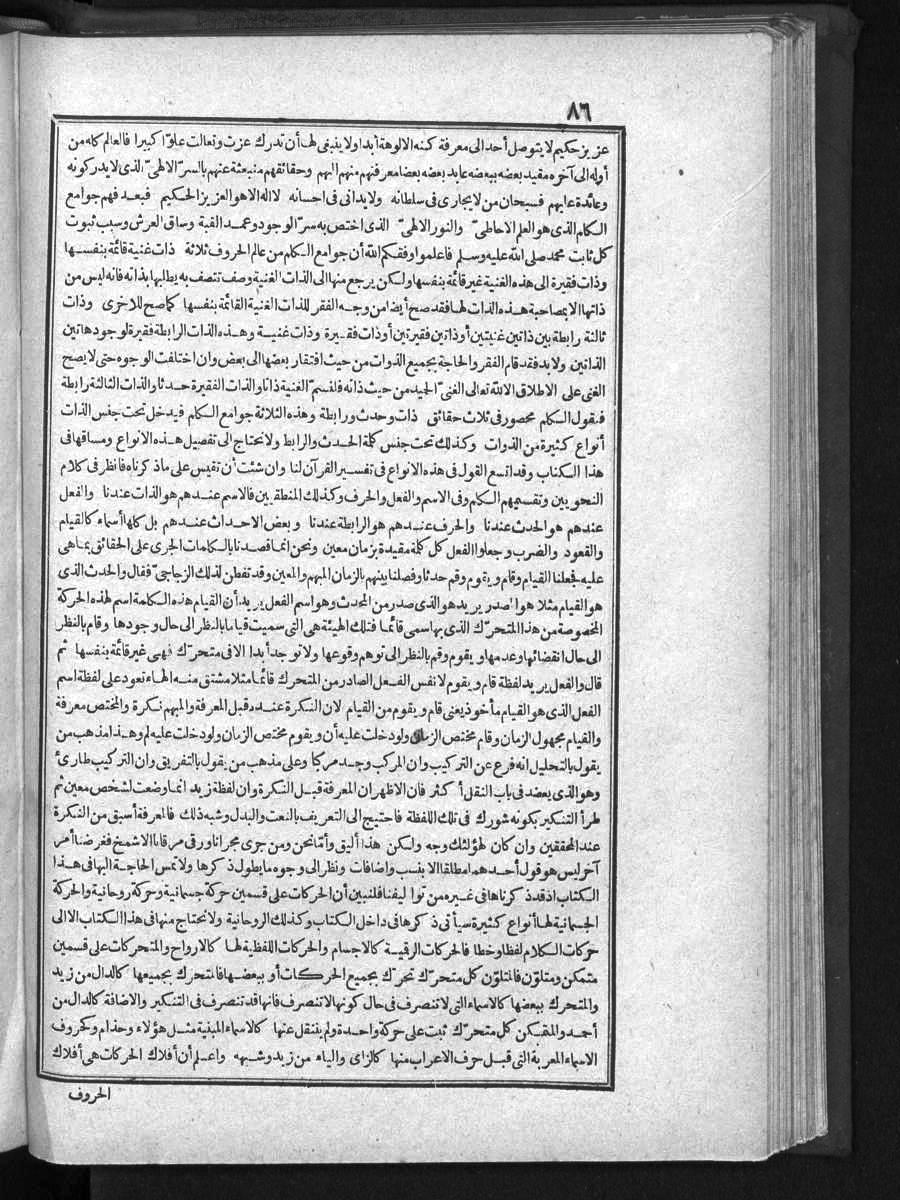 ٨٦
عزيز حكيم لا يتوصل أحد الى معرفة كنه الالوهة أبدا ولا ينبغي لها أن تدرك عزت وتعالت علوّا كبيرا فالعالم كله من
أوله الى آخره مقيد بعضه ببعضه عابد بعضه بعضا معرفتهم منهم اليهم وحقائقهم منبعثة عنهم بالسرّ الالهىّ الذى لا يدركونه
وعائدة عليهم فسبحان من لا يجارى فى سلطانه ولا يدانى فى احسانه لا اله الا هو العزيز الحكيم فبعد فهم جوامع
الكلم الذى هو العلم الاحاطىّ والنور الالهىّ الذى اختص به سرّ الوجود وعمد القبة وساق العرش وسبب ثبوت
كل ثابت محمد صلى الله عليه وسلم فاعلموا وفقكم الله أن جوامع الكلم من عالم الحروف ثلاثة ذات غنية قائمة بنفسها
وذات فقيرة الى هذه الغنية غير قائمة بنفسها ولكن يرجع منها الى الذات الغنية وصف تتصف به يطلبها بذاته فانه ليس من
ذاتها الا بمصاحبة هذه الذات لها فقد صح أيضا من وجه الفقر للذات الغنية القائمة بنفسها كما صح للاخرى وذات
ثالثة رابطة بين ذاتين غنيتين أو ذاتين فقيرتين أو ذات فقيرة وذات غنية وهذه الذات الرابطة فقيرة لوجود هاتين
الذاتين ولا بد فقد قام الفقر والحاجة بجميع الذوات من حيث افتقار بعضها الى بعض وان اختلفت الوجوه حتى لا يصح
الغنى على الاطلاق الا لله تعالى الغنىّ الحميد من حيث ذاته فلنسمّ الغنية ذاتا والذات الفقيرة حدثا والذات الثالثة رابطة
فنقول الكلم محصور فى ثلاث حقائق ذات وحدث ورابطة وهذه الثلاثة جوامع الكلم فيدخل تحت جنس الذات
أنواع كثيرة من الذوات وكذلك تحت جنس كلمة الحدث والرابط ولا نحتاج الى تفصيل هذه الانواع ومساقها فى
هذا الكتاب وقد اتسع القول فى هذه الانواع فى تفسير القرآن لنا وان شئت أن تقيس على ما ذكرناه فانظر فى كلام
النحويين وتقسيمهم الكلم وفى الاسم والفعل والحرف وكذلك المنطقيين فالاسم عندهم هو الذات عندنا والفعل
عندهم هو الحدث عندنا والحرف عندهم هو الرابطة عندنا وبعض الاحداث عندهم بل كلها أسماء كالقيام
والقعود والضرب وجعلوا الفعل كل كلمة مقيدة بزمان معين ونحن انما قصدنا بالكلمات الجرى على الحقائق بما هى
عليه فجعلنا القيام وقام ويقوم وقم حدثا وفصلنا بينهم بالزمان المبهم والمعين وقد تفطن لذلك الزجاجىّ فقال والحدث الذى
هو القيام مثلا هو المصدر يريد هو الذى صدر من المحدث وهو اسم الفعل يريد أن القيام هذه الكلمة اسم لهذه الحركة
المخصوصة من هذا المتحرّك الذى بها سمى قائما فتلك الهيئة هى التى سميت قياما بالنظر الى حال وجودها وقام بالنظر
الى حال انقضائها وعدمها ويقوم وقم بالنظر الى توهم وقوعها ولا توجد أبدا الا فى متحرّك فهى غير قائمة بنفسها ثم
قال والفعل يريد لفظة قام ويقوم لا نفس الفعل الصادر من المتحرك قائما مثلا مشتق منه الهاء تعود على لفظة اسم
الفعل الذى هو القيام مأخوذ يعنى قام ويقوم من القيام لان النكرة عنده قبل المعرفة والمبهم نكرة والمختص معرفة
والقيام مجهول الزمان وقام مختص الزمان ولو دخلت عليه أن ويقوم مختص الزمان ولو دخلت عليه لم وهذا مذهب من
يقول بالتحليل انه فرع عن التركيب وان المركب وجد مركبا وعلى مذهب من يقول بالتفريق وان التركيب طارئ
وهو الذى يعضد فى باب النقل أكثر فان الاظهر ان المعرفة قبل النكرة وان لفظة زيد انما وضعت لشخص معين ثم
طرأ التنكير بكونه شورك فى تلك اللفظة فاحتيج الى التعريف بالنعت والبدل وشبه ذلك فالمعرفة أسبق من النكرة
عند المحققين وان كان لهؤلئك وجه ولكن هذا أليق وأما نحن ومن جرى مجرانا ورقى مرقانا الاشمخ فغرضنا أمر
آخر ليس هو قول أحدهما مطلقا الا بنسب واضافات ونظر الى وجوه ما يطول ذكرها ولا تمس الحاجة اليها فى هذا
الكتاب اذ قد ذكرناها فى غيره من تواليفنا فلنبين أن الحركات على قسمين حركة جسمانية وحركة روحانية والحركة
الجسمانية لها أنواع كثيرة سيأتى ذكرها فى داخل الكتاب وكذلك الروحانية ولا نحتاج منها فى هذا الكتاب الا الى
حركات الكلام لفظا وخطا فالحركات الرقمية كالاجسام والحركات اللفظية لها كالارواح والمتحركات على قسمين
متمكن ومتلوّن فالمتلوّن كل متحرّك تحرّك بجميع الحركات أو ببعضها فالمتحرك بجميعها كالدال من زيد
والمتحرك ببعضها كالاسماء التى لا تنصرف فى حال كونها لا تنصرف فانها قد تنصرف فى التنكير والاضافة كالدال من
أحمد والمتمكن كل متحرّك ثبت على حركة واحدة ولم ينتقل عنها كالاسماء المبنية مثل هؤلاء وحذام وكحروف
الاسماء المعربة التى قبل حرف الاعراب منها كالزاى والياء من زيد وشبهه واعلم أن أفلاك الحركات هى أفلاك
الحروف